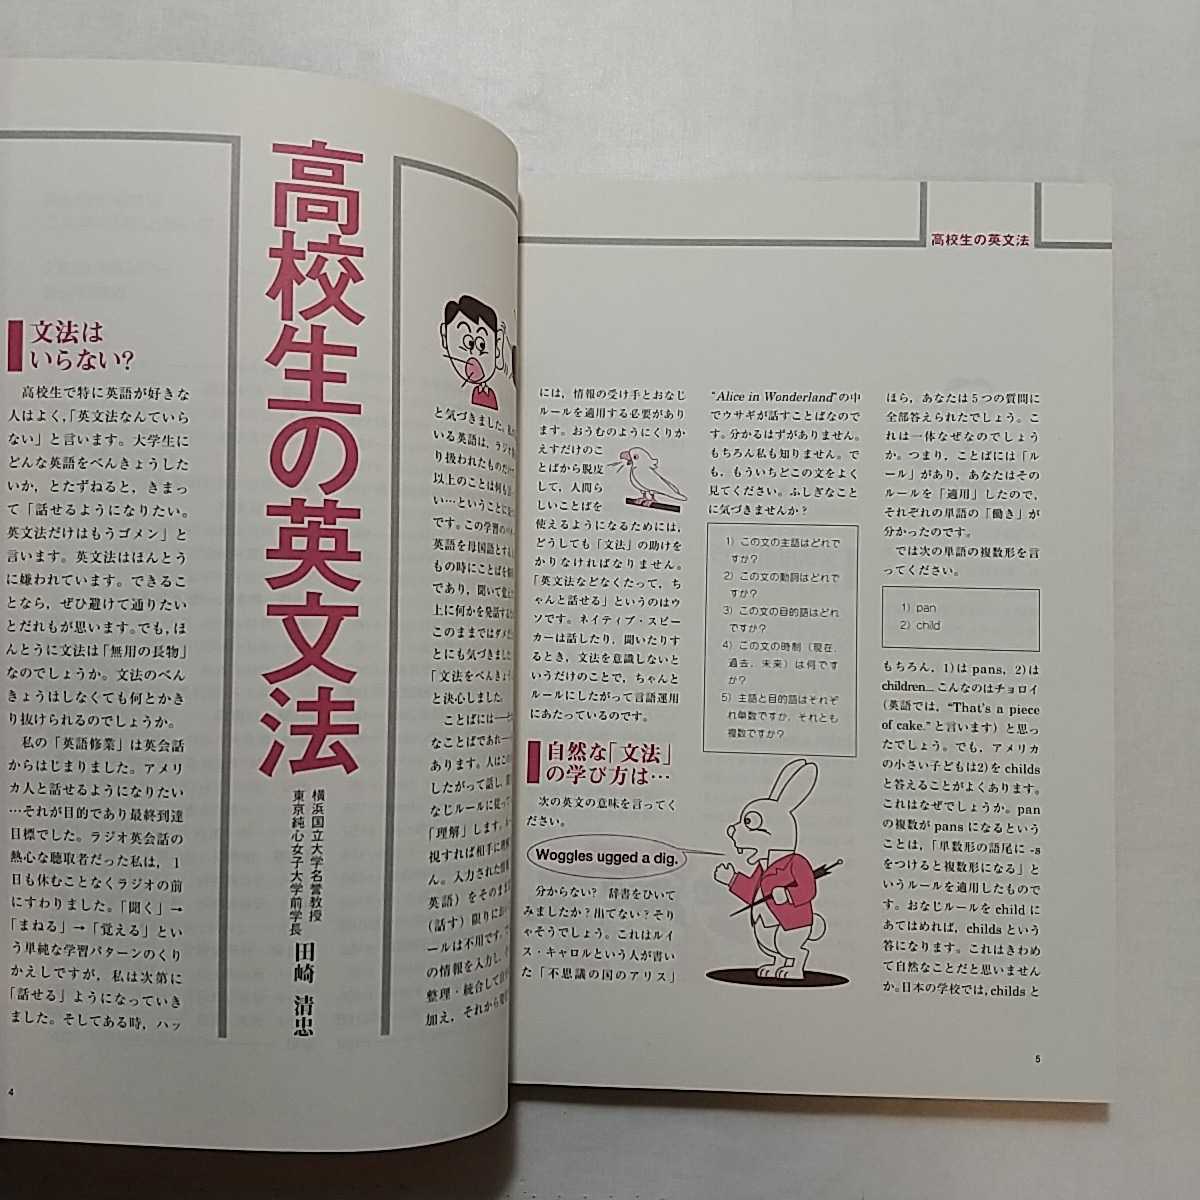 高校生の英文法
横浜国立大学名誉教授
東京純心女子大学前学長
田崎 清忠
文法は
いらない?
高校生で特に英語が好きな
人はよく,「英文法なんていら
ない」と言います。大学生に
どんな英語をべんきょうした
いか，とたずねると，きまっ
て「話せるようになりたい。
英文法だけはもうゴメン」と
言います。英文法はほんとう
に嫌われています。できるこ
となら，ぜひ避けて通りたい
とだれもが思います。でも，ほ
んとうに文法は「無用の長物」
なのでしょうか。文法のべん
きょうはしなくても何とかき
り抜けられるのでしょうか。
私の「英語修業」は英会話
からはじまりました。アメリ
カ人と話せるようになりたい
…それが目的であり最終到達
目標でした。ラジオ英会話の
熱心な聴取者だった私は，1
日も休むことなくラジオの前
にすわりました。「聞く」→
「まねる」→「覚える」とい
う単純な学習パターンのくり
かえしですが，私は次第に
「話せる」ようになっていき
ました。そしてある時，ハッ
と気づきました。
いる英語は，ラジオ
り扱われたものだけ
以上のことは何も
い…ということに
です。この学習のパ
英語を母国語とする
もの時にことばを
であり，聞いて覚え
上に何かを発話する
このままではダメだ
とにも気づきました
「文法をべんきょう
と決心しました。
ことばには
なことばであれ
あります。人はこの
したがって話し，
なじルールに従って
「理解」します。
視すれば相手に理解
ん。入力された情報
英語）をそのまま
（話す）限りにおい
ールは不用です。
の情報を入力し，
整理・統合して自
加え，それから発
4
高校生の英文法
には，情報の受け手とおなじ
ルールを適用する必要があり
ます。おうむのようにくりか
えすだけのこ
とばから脱皮
して，人間ら
しいことばを
使えるようになるためには，
どうしても「文法」の助けを
かりなければなりません。
「英文法などなくたって，ち
ゃんと話せる」というのはウ
ソです。ネイティブ・スピー
カーは話したり，聞いたりす
るとき，文法を意識しないと
いうだけのことで，ちゃんと
ルールにしたがって言語運用
にあたっているのです。
自然な「文法」
の学び方は…
次の英文の意味を言ってく
ださい。
Woggles ugged a dig.
分からない？ 辞書をひいて
みましたか？出てない？そり
ゃそうでしょう。これはルイ
ス・キャロルという人が書い
た「不思議の国のアリス」
“Alice in Wonderland”の中
でウサギが話すことばなので
す。分かるはずがありません。
もちろん私も知りません。で
も，もういちどこの文をよく
見てください。ふしぎなこと
に気づきませんか？
1）この文の主語はどれで
すか？
2）この文の動詞はどれで
すか？
3）この文の目的語はどれ
ですか？
4）この文の時制（現在，
過去，未来）は何です
か？
5）主語と目的語はそれぞ
れ単数ですか，それとも
複数ですか？
ほら，あなたは5つの質問に
全部答えられたでしょう。こ
れは一体なぜなのでしょう
か。つまり，ことばには「ル
ール」があり，あなたはその
ルールを「適用」したので，
それぞれの単語の「働き」が
分かったのです。
では次の単語の複数形を言
ってください。
1）pan
2）child
もちろん，1）は pans，2）は
children… こんなのはチョロイ
（英語では，“That's a piece
of cake.” と言います）と思っ
たでしょう。でも，アメリカ
の小さい子どもは2）を childs
と答えることがよくあります。
これはなぜでしょうか。pan
の複数が pans になるという
ことは，「単数形の語尾に -s
をつけると複数形になる」と
いうルールを適用したもので
す。おなじルールを child に
あてはめれば，childs という
答になります。これはきわめ
て自然なことだと思いません
か。日本の学校では，childs と
5